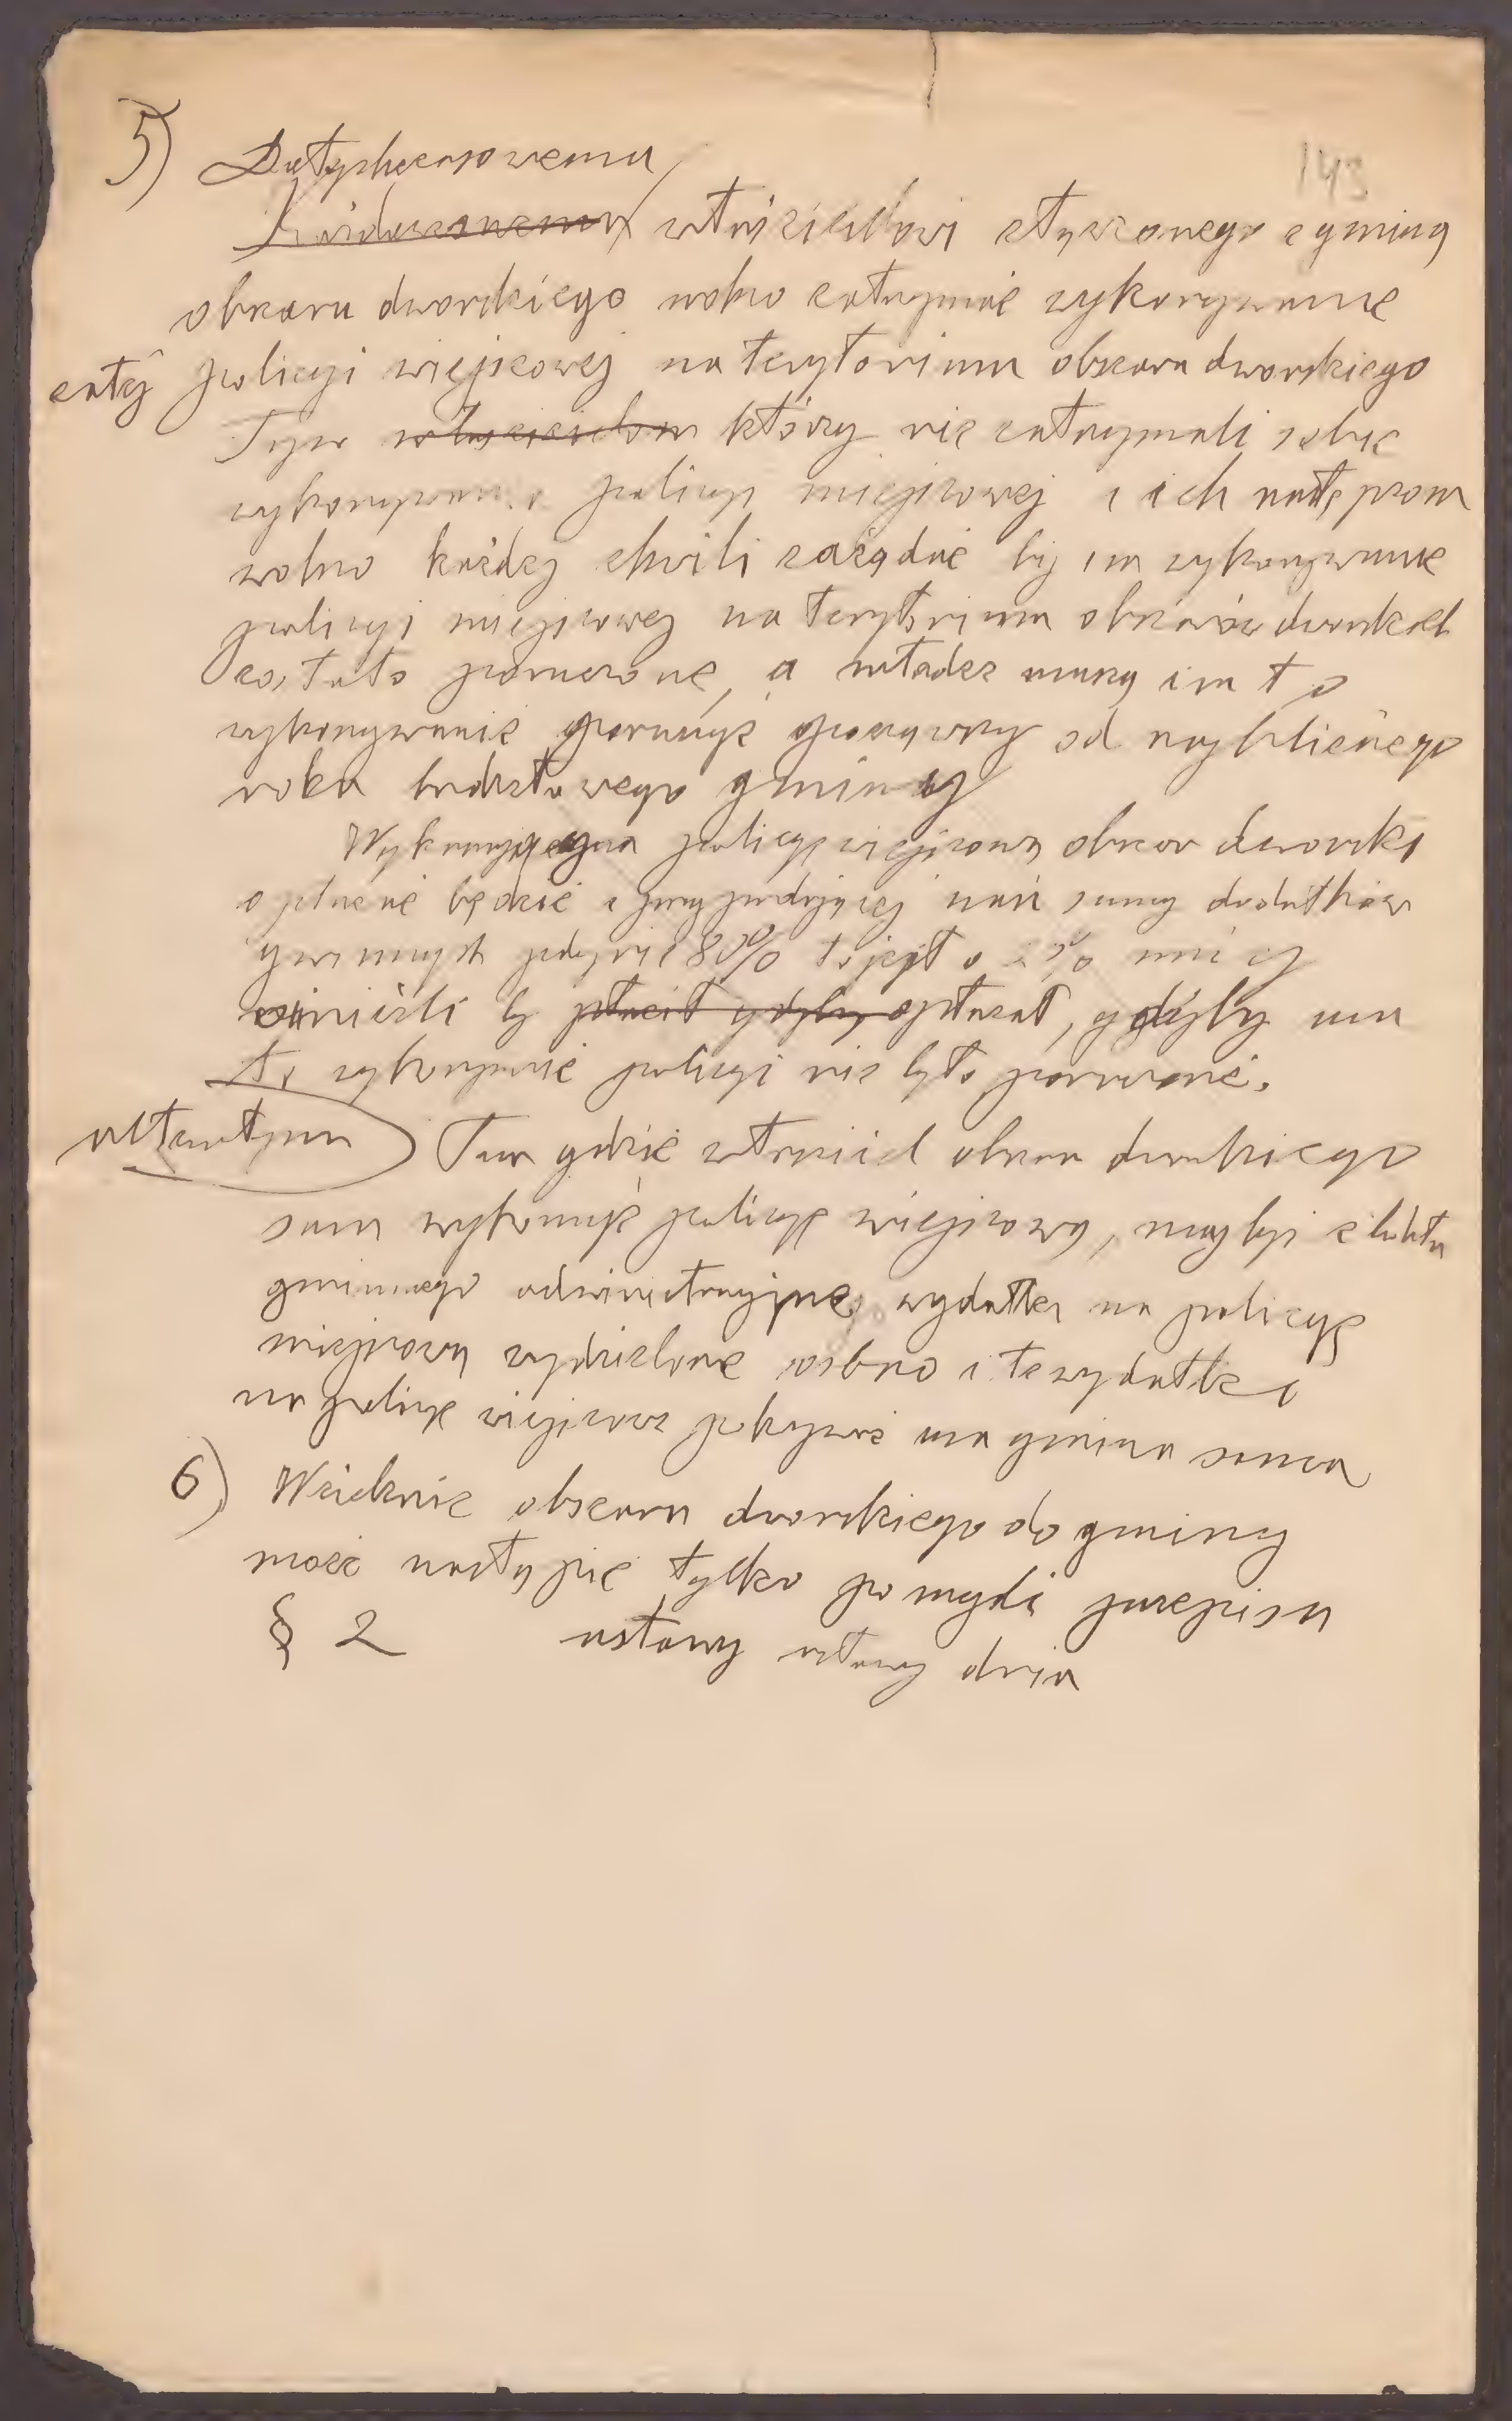 143
5) Dotychczasowemu
właścicielowi złączonego z gminą
obszaru dworskiego wolno zatrzymać wykonywanie
całej policyi miejscowej na terytorium obszaru dworskiego
Tym właścicielom którzy nie zatrzymali sobie
wykonywania policyi miejscowej i ich następcom
wolno każdej chwili zażądać by im wykonywanie
policyi miejscowej na terytorium obszarów dworskich
zostało poruczone, a władze muszą im to
wykonywanie poruczyć począwszy od najbliższego
roku budżetowego gminy
Wykonujący policyę miejscową obszar dworski
opłacać będzie z przypadającej nań sumy dodatków
gminnych jedynie 80% to jest o % mniej
aniżeli by płacił gdyby opłacał, gdyby mu
to wykonywanie policyi nie było poruczone.
alternatywa Tam gdzie właściciel obszaru dworskiego
sam wykonuje policyę miejscową, mają być z budżetu
gminnego administracyjne wydatki na policyę
miejscową wydzielone osobno i te wydatki
na policyę miejscową pokrywać ma gmina sama
6) Wcielenie obszaru dworskiego do gminy
może nastąpić tylko po myśli przepisu
§ 2 ustawy ustawy dnia